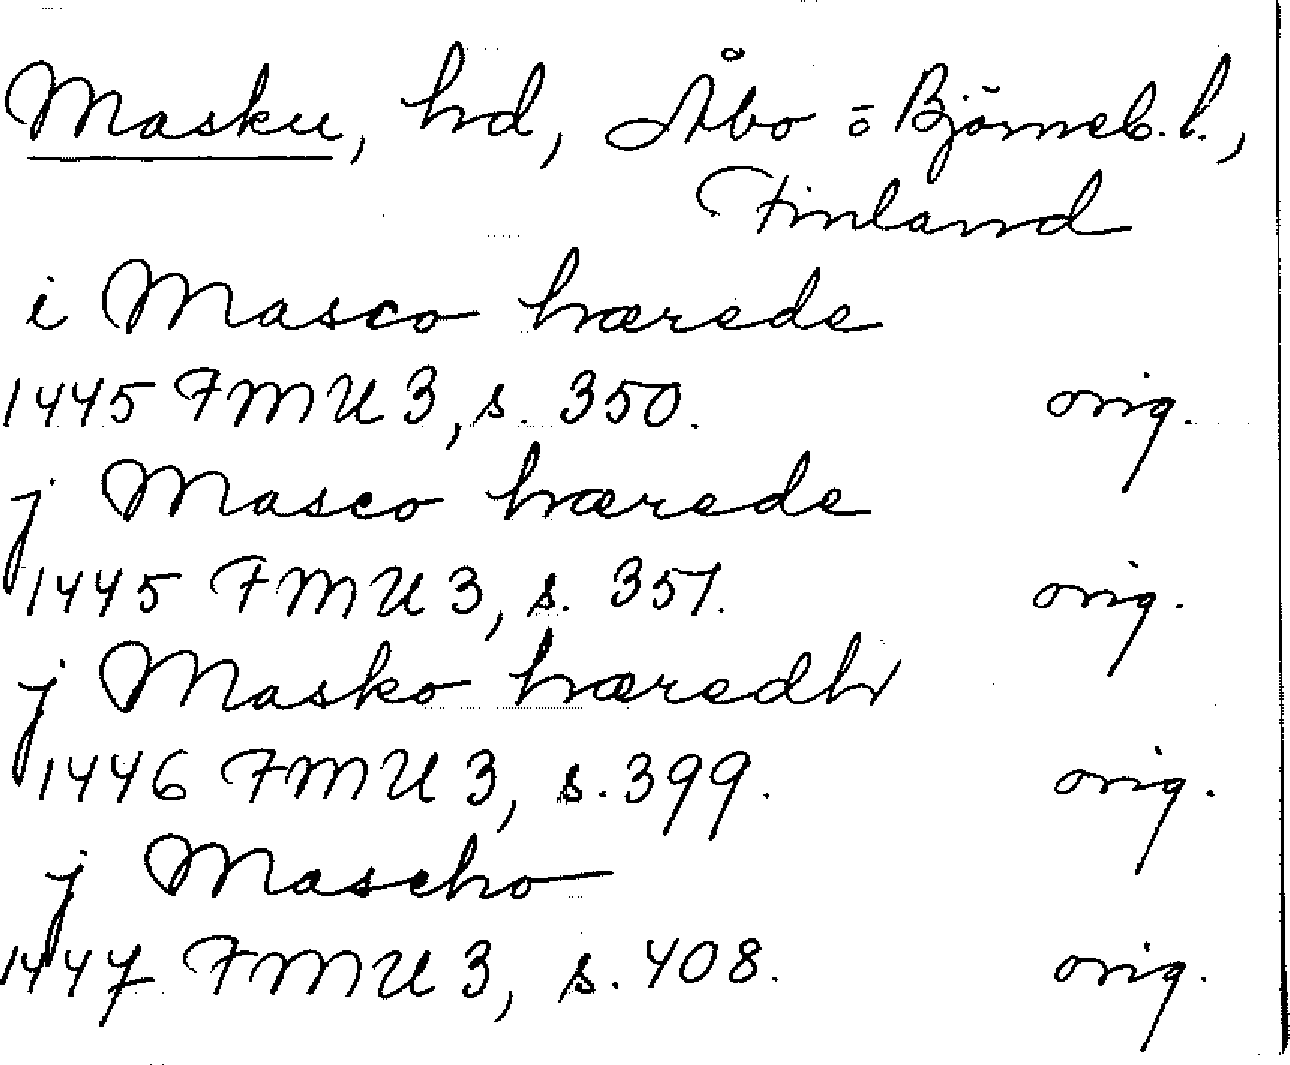 Masku, hd, Åbo o Björneb. l.,
Finland
i Masco hærede
1445 FMU 3, s. 350. orig.
j Masco hærede
1445 FMU 3, s. 351. orig.
j Masko hæredh
1446 FMU 3, s. 399. orig.
j Mascho
1447 FMU 3, s. 408. orig.